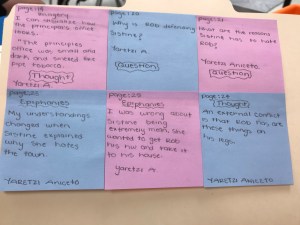 page:19
Recovery
I can visualize how
the principals office
looks.
"The principles
office was small and
dark and smelled like
pipe tobacco.
Thought
Yaretzi A.
page:20
Why is Rob defending
Sistine?
Yaretzi A.
QUESTION
What are the reasons
Sistine has to hate
Rob?
Yaretzi Aniceto
QUESTION
Epiphanies
My understandings
changed when
Sistine explained
why she hates
the town.
YARETZI ANICETO
page:23
Epiphanies
I was wrong about
Sistine being
extremely mean. She
wanted to get Rob
his hw and take it
to his house.
Yaretzi A
page:24
Thought
An external conflict
is that Rob has
these things on
his legs.
YARETZI ANICETO